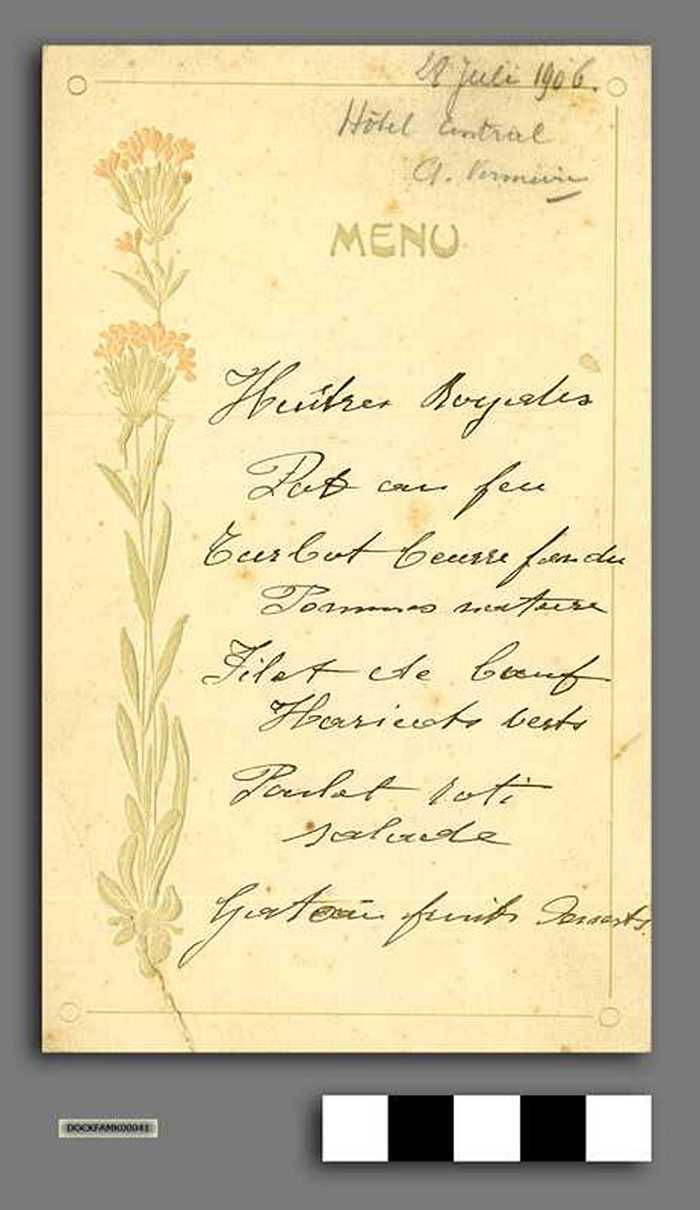 28 Juli 1906.
Hôtel Central
A.
MENU
Huîtres Royales
Pot au feu
Turbot beurre fondu
Pommes nature
Filet de bœuf
Haricots verts
Poulet roti
salade
Gateau fruits Desserts.
DOCKFAMK00041